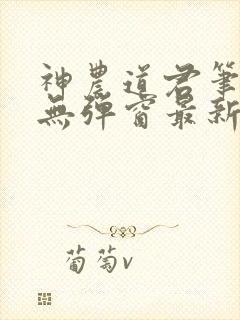 神農道君筆
無彈窗最新
葡萄v